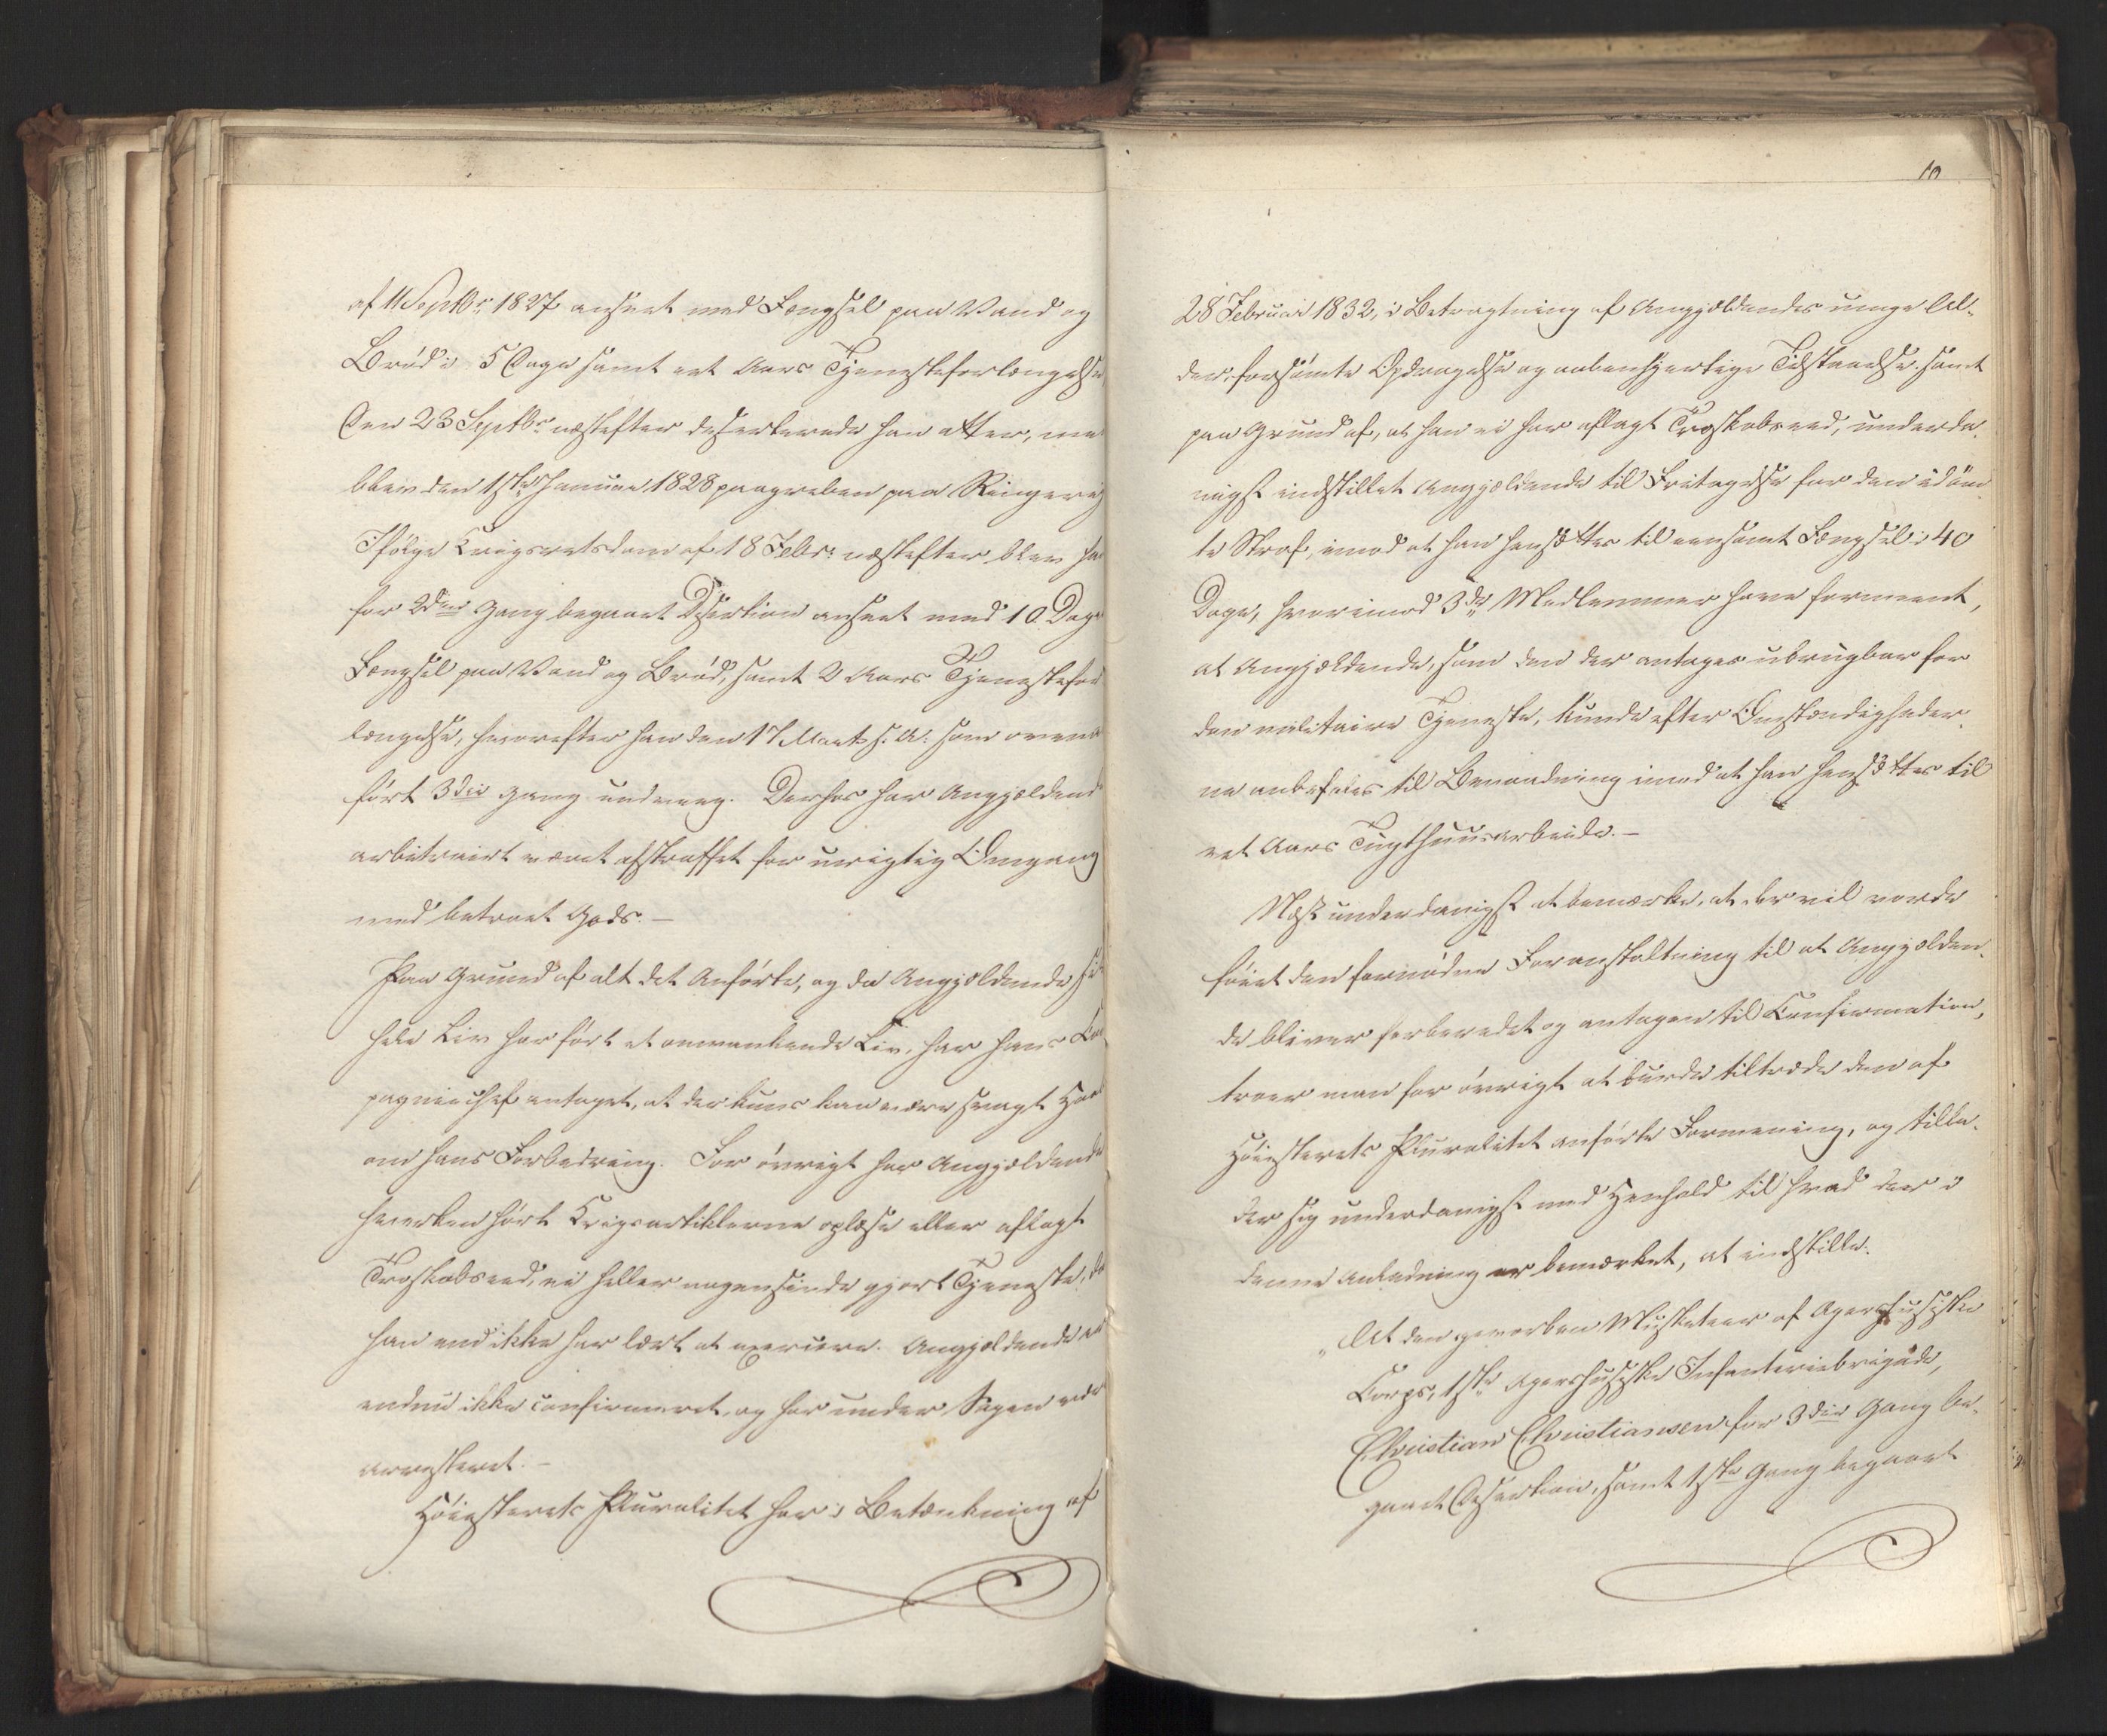 af 11 Septbr: 1827 anseet med Fængsel paa Vand og
Brød i 5 Dage samt eet Aars Tjenesteforlængelse
Den 23 Septbr: næstefter deserterede han atter, men
blev den 1ste Januar 1828 paagreben paa Ringerig
Ifølge Krigsretsdom af 18 Febr: næstefter blev ha
for 2den Gang begaaet Desertion anseet med 10 Dage
Fængsel paa Vand og Brød, samt 2 Aars Tjenestefor
længelse, hvorefter han den 17 Marts s. A: som oven
ført 3die Gang undveeg. Derhos har Angjældende
arbitrairt været afstraffet for urigtig Omgang
med betroet Gods. –
Paa Grund af alt det Anførte, og da Angjældende si
hele Liv har ført et omvankende Liv, har hans Co
pagniechef antaget, at der kuns kan være svagt Haab
om hans Forbedring. For øvrigt har Angjældende
hverken hørt Krigsartiklerne oplæse eller aflagt
Troskabseed, ei heller nogensinde gjort Tjeneste, da
han end ikke har lært at exercere. Angjældende er
endnu ikke confirmeret, og har under Sagen været
arresteret. –
Høiesterets Pluralitet har i Betænkning af
10
28 Februar 1832, i Betragtning af Angjældendes unge Al-
der, forsømte Opdragelse og aabenhjertige Tilstaaelse samt
paa Grund af, at han ei har aflagt Troskabseed, underda-
nigst indstillet Angjældende til Fritagelse for den idøm-
te Straf, imod at han hensættes til eensomt Fængsel i 40
Dage, hvorimod 3de Medlemmer have formeent,
at Angjældende, som den der antages ubrugbar for
den militaire Tjeneste, kunde efter Omstændigheder-
ne anbefales til Benaadning imod at han hensættes til
eet Aars Tugthuusarbeide. –
Næst underdanigst at bemærke, at der vil vorde
føiet den fornødne Foranstaltning til at Angjælden-
de bliver forberedet og antagen til Confirmation,
troer man for øvrigt at burde tiltræde den af
Høiesterets Pluralitet anførte Formening, og tilla-
der sig underdanigst med Henhold til hvad der i
denne Anledning er bemærket, at indstille:
„At den gevorben Musketeer af Agershusiske
Corps, 1ste Agershusiske Infanteriebrigade,
Christian Christiansen for 3die Gang be-
gaaet Desertion, samt 1ste Gang begaaet